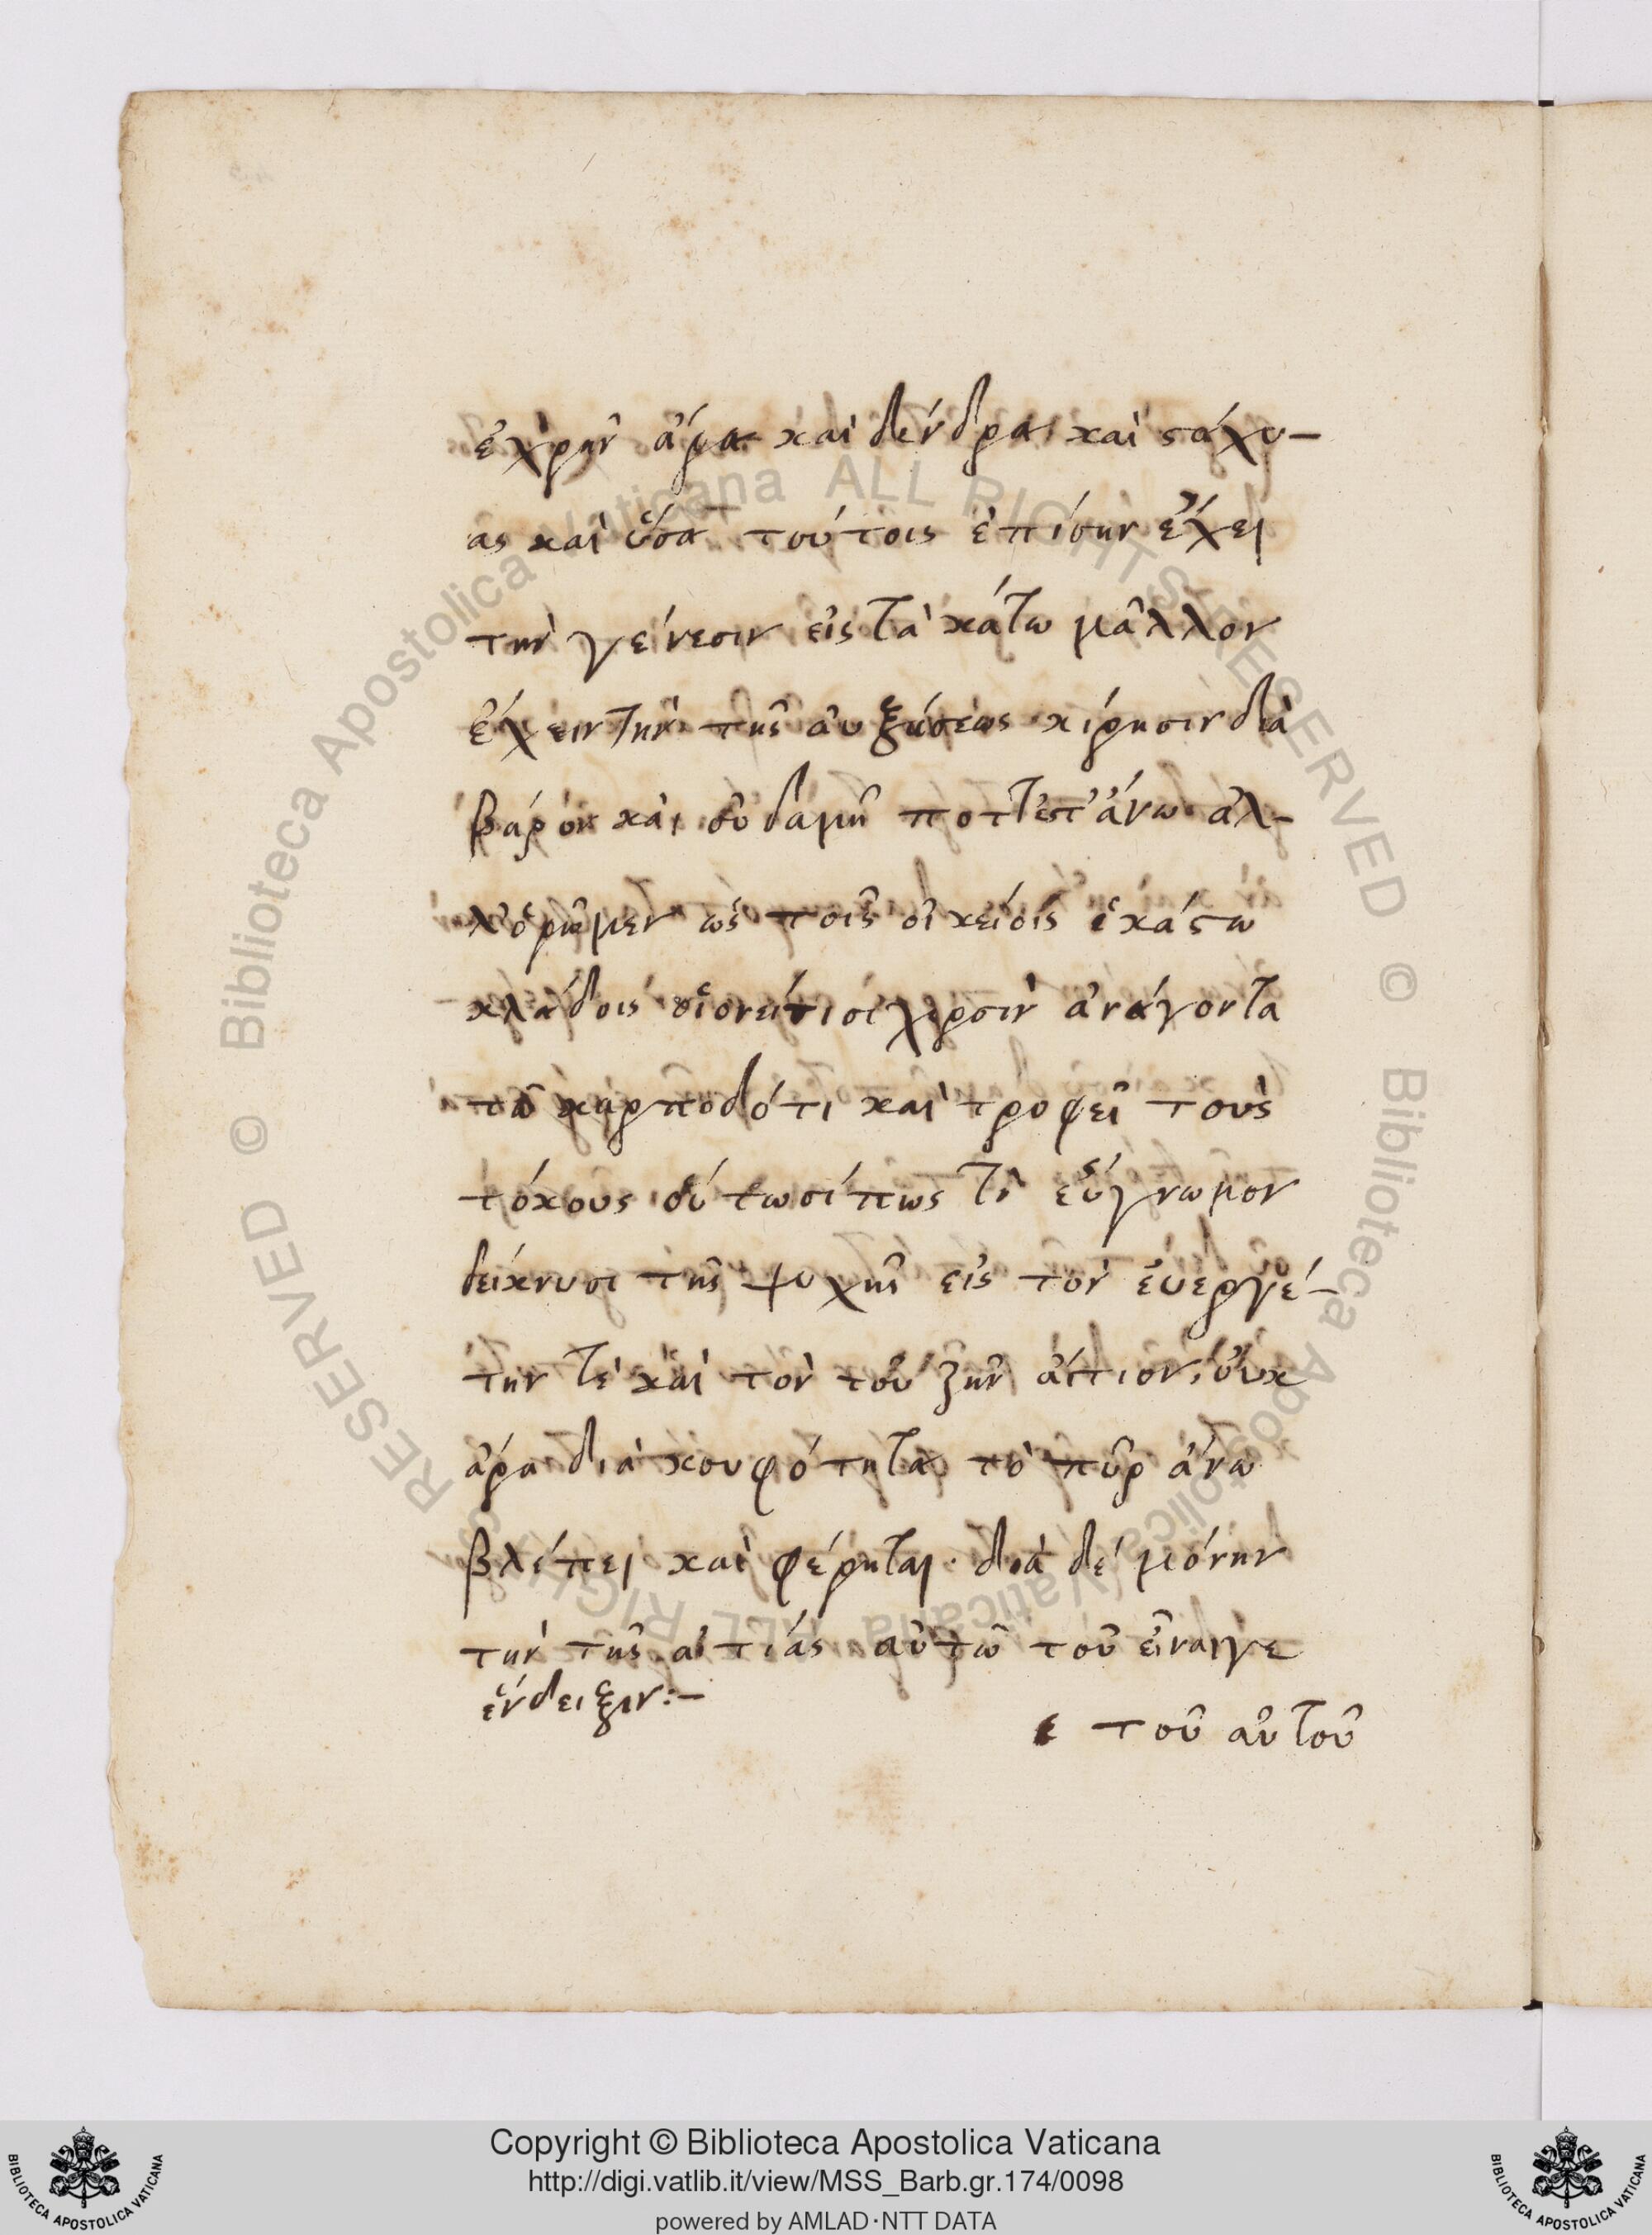 ἐχρῆν ἄρα καὶ δένδρα καὶ στάχυ-
ας καὶ ὅσα τούτοις ἐπίσην ἔχει
τὴν γένεσιν εἰς τὰ κάτω μᾶλλον
ἔχειν τὴν τῆς αὐξήσεως κίνησιν διὰ
βάρον καὶ οὐδαμῆ ποτ' ἐπ' ἄνω ἀλ-
λ' ὁρῶμεν ὡς τοῖς οἰκείοις ἑκάστω
κλάδοις οἱονεί τισι χερσὶν ἀνάγοντα
τῶ καρποδότι καὶ τροφεῖ τοὺς
τόκους οὑτωσίπως τὸ εὔγνωμον
δείκνυσι τῆς ψυχῆς εἰς τὸν ἐυεργέ-
την τὲ καὶ τὸν τοῦ ζῆν ἀίτιον, ὀυκ
ἄρα διὰ κουφότητα τὸ πῦρ ἄνω
βλέπει καὶ φέρηται· διὰ δέ μόνην
τὴν τῆς αἰτιάς αὐτῶ τοῦ εἶναιγε
ἔνδειξιν:-
τοῦ αὐτοῦ
Copyright © Biblioteca Apostolica Vaticana
http://digi.vatlib.it/view/MSS_Barb.gr.174/0098
powered by AMLAD·NTT DATA
BIBLIOTECA APOSTOLICA VATICANA
BIBLIOTECA APOSTOLICA VATICANA
© Biblioteca Apostolica Vaticana ALL RIGHTS RESERVED
© Biblioteca Apostolica Vaticana ALL RIGHTS RESERVED